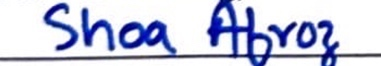 Shoa Afroz